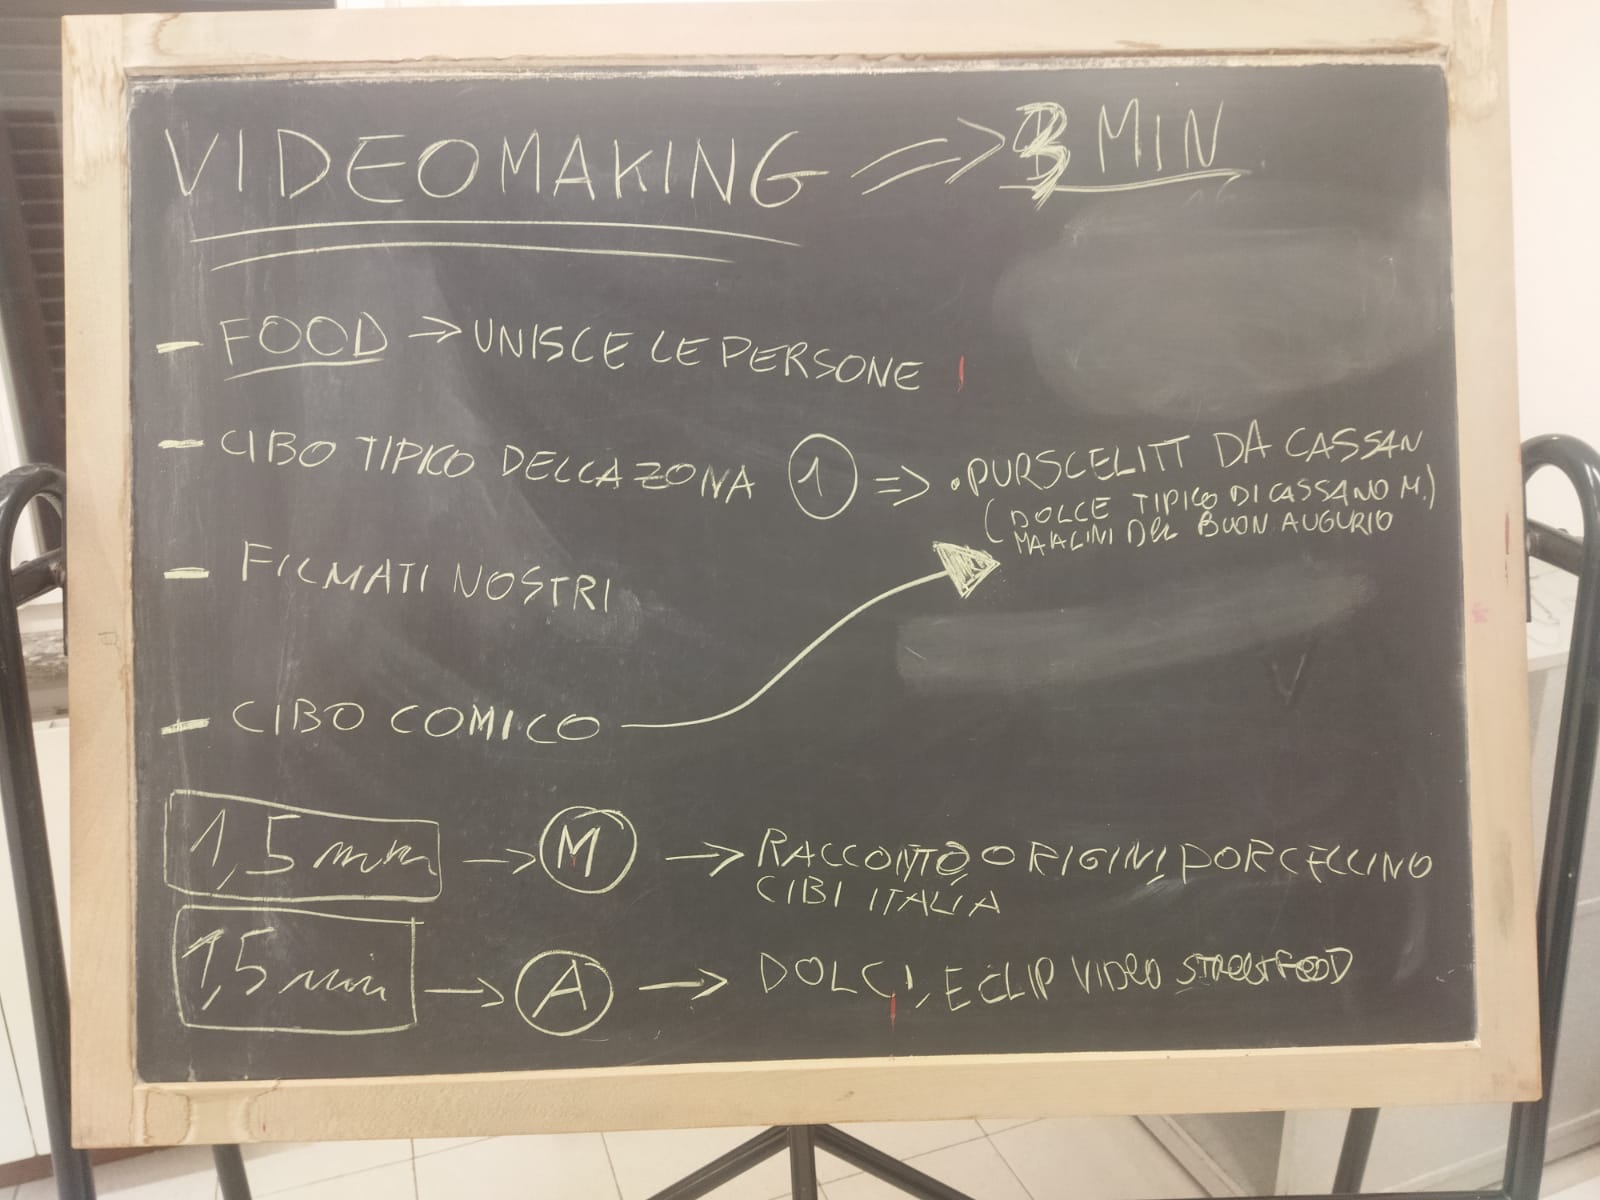 VIDEOMAKING => 3 MIN
- FOOD -> UNISCE LE PERSONE
- CIBO TIPICO DELLA ZONA 1 => • PURSCELITT DA CASSAN
(DOLCE TIPICO DI CASSANO M.)
MAIALINI DEL BUON AUGURIO
- FILMATI NOSTRI
- CIBO COMICO
1,5 min -> M -> RACCONTO, ORIGINI, PORCELLINO
CIBI ITALIA
1,5 min -> A -> DOLCI, E CLIP VIDEO STREET FOOD